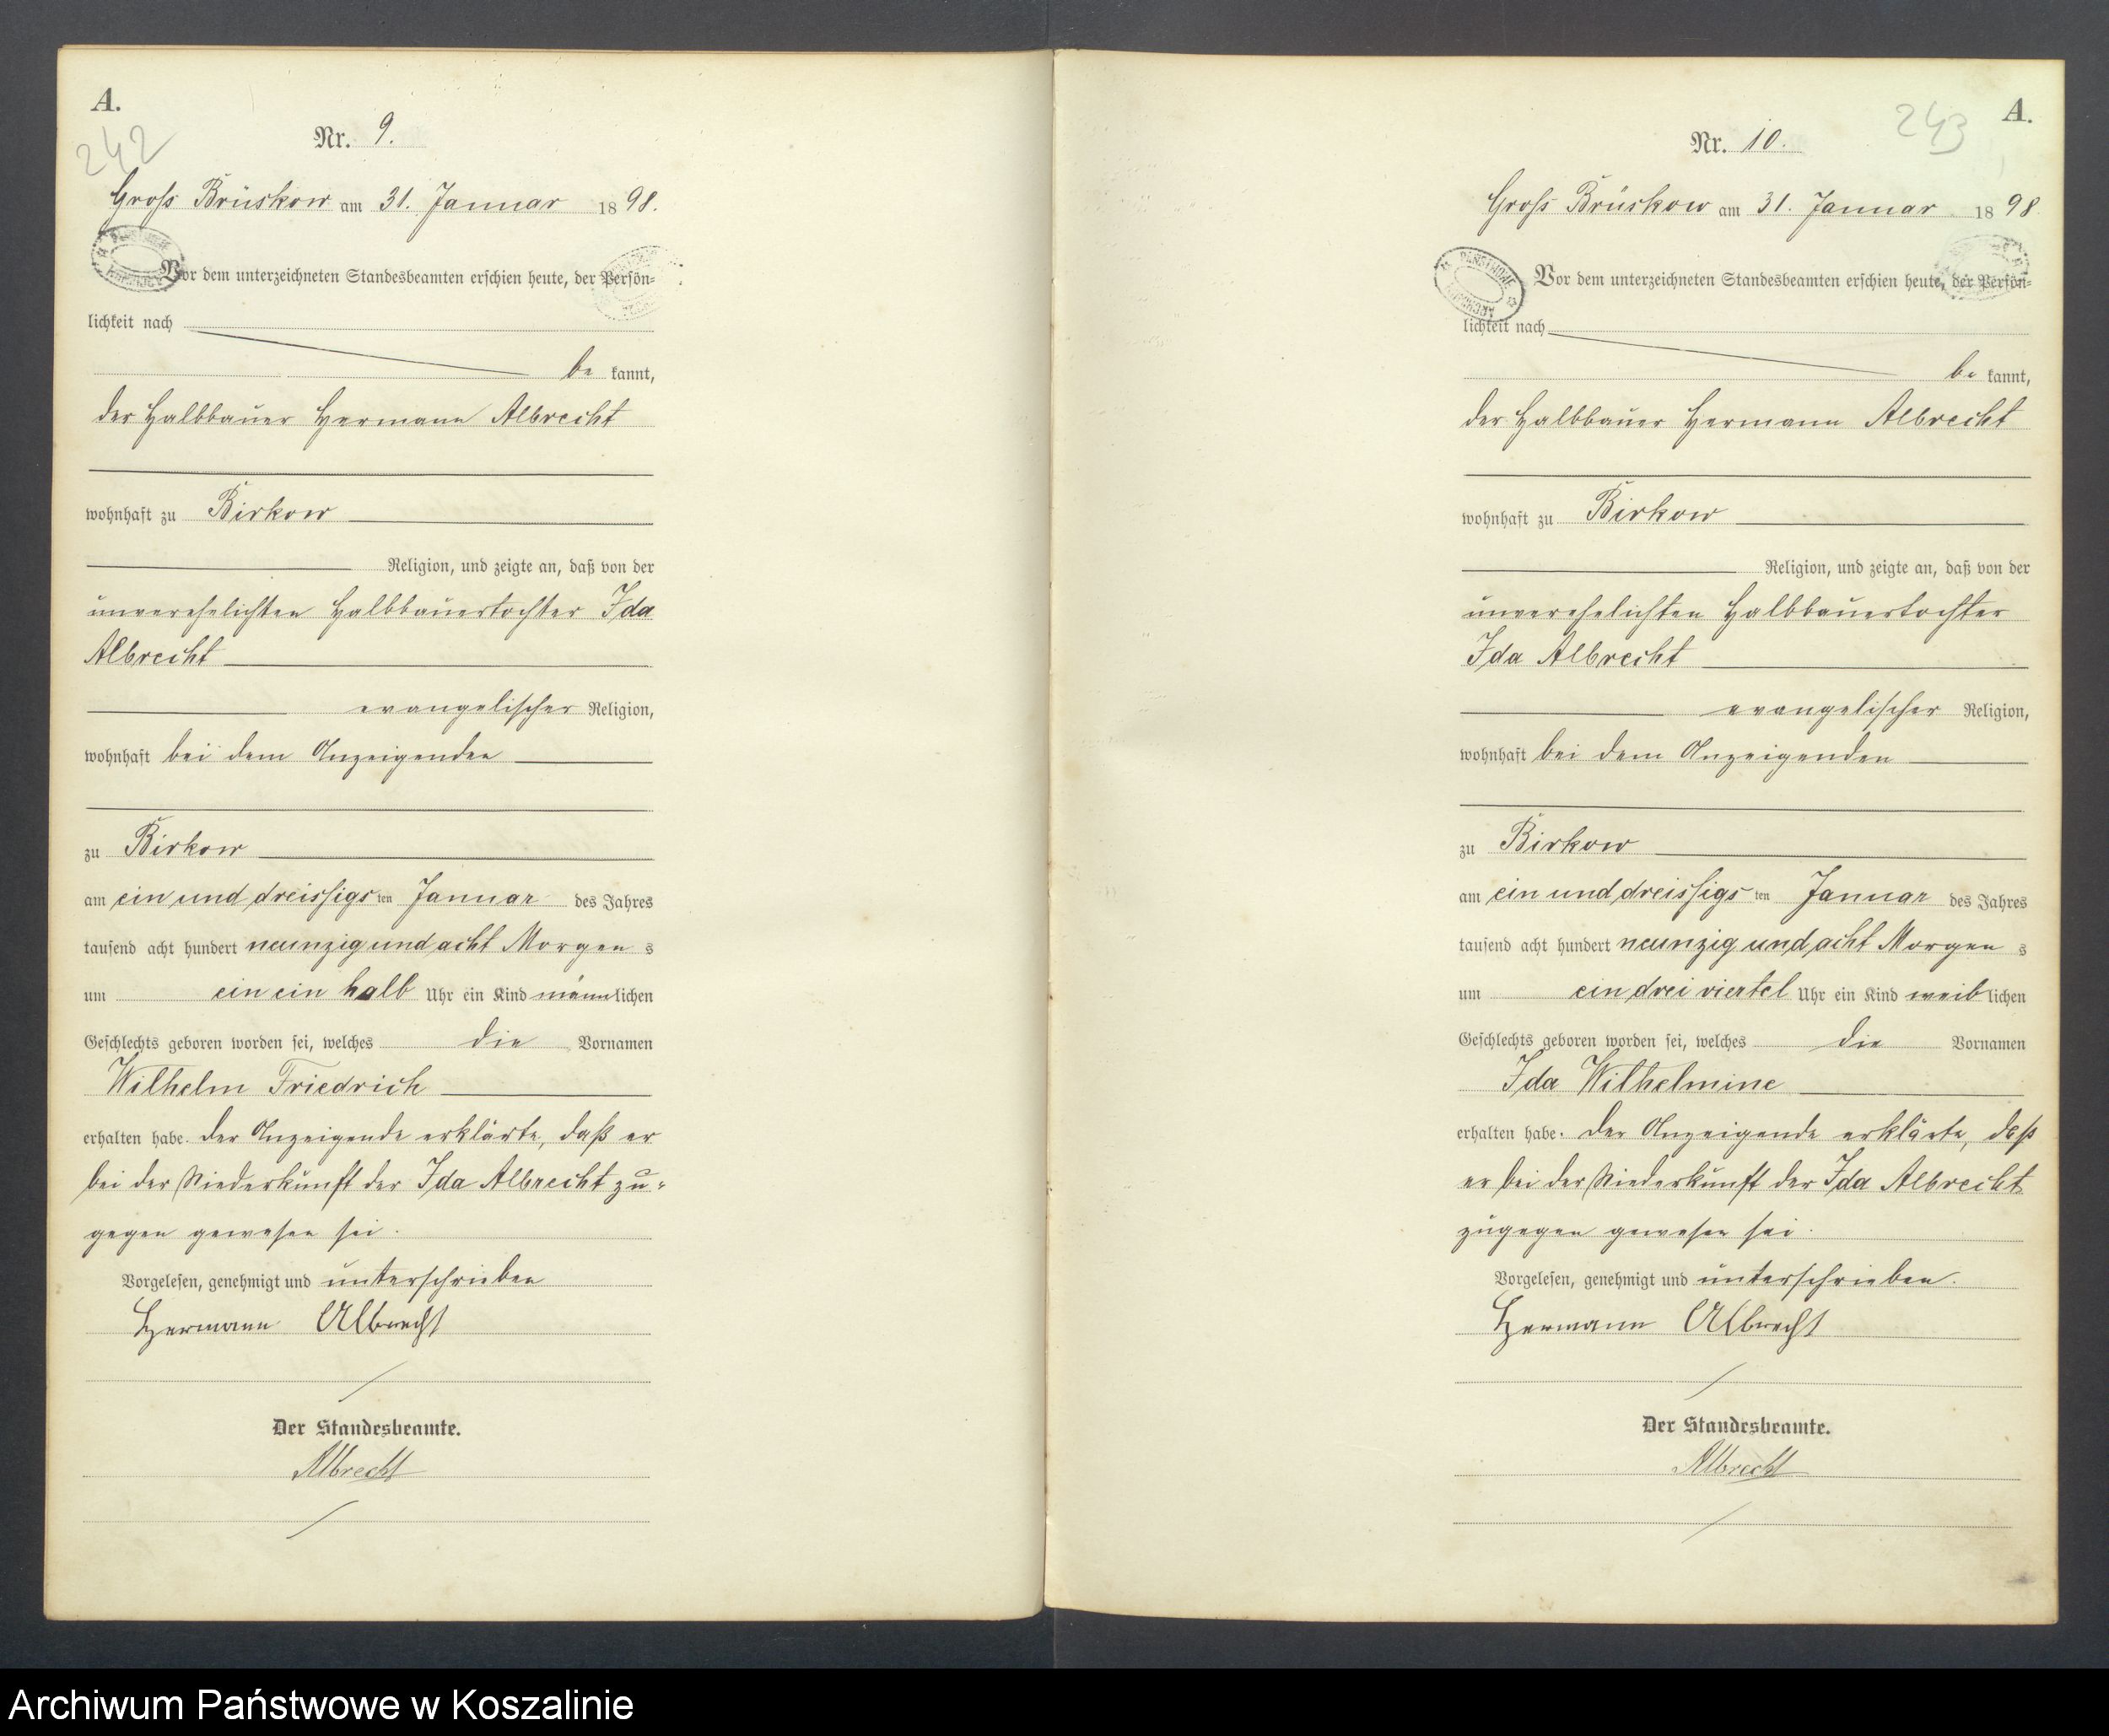 A.
242
Nr. 9.
Groß Brüskow am 31. Januar 1898.
Vor dem unterzeichneten Standesbeamten erschien heute, der Persön-
lichkeit nach
be kannt,
der Halbbauer Hermann Albrecht
wohnhaft zu Birkow
Religion, und zeigte an, daß von der
unverehelichten Halbbauertochter Ida
Albrecht
evangelischer Religion,
wohnhaft bei dem Anzeigenden
zu Birkow
am ein und dreissigsten Januar des Jahres
tausend acht hundert neunzig und acht Morgens
um ein ein halb Uhr ein Kind männlichen
Geschlechts geboren worden sei, welches die Vornamen
Wilhelm Friedrich
erhalten habe. Der Anzeigende erklärte, daß er
bei der Niederkunft der Ida Albrecht zu-
gegen gewesen sei.
Vorgelesen, genehmigt und unterschrieben
Hermann Albrecht
Der Standesbeamte.
Albrecht
A.
243
Nr. 10.
Groß Brüskow am 31. Januar 1898
ARCHIWUM PAŃSTWOWE
Vor dem unterzeichneten Standesbeamten erschien heute, der Persön-
lichkeit nach
be kannt,
der Halbbauer Hermann Albrecht
wohnhaft zu Birkow
Religion, und zeigte an, daß von der
unverehelichten Halbbauertochter
Ida Albrecht
evangelischer Religion,
wohnhaft bei dem Anzeigenden
zu Birkow
am ein und dreissigsten Januar des Jahres
tausend acht hundert neunzig und acht Morgens
um ein drei viertel Uhr ein Kind weiblichen
Geschlechts geboren worden sei, welches die Vornamen
Ida Wilhelmine
erhalten habe. Der Anzeigende erklärte, daß
er bei der Niederkunft der Ida Albrecht
zugegen gewesen sei.
Vorgelesen, genehmigt und unterschrieben.
Hermann Albrecht
Der Standesbeamte.
Albrecht
Archiwum Państwowe w Koszalinie